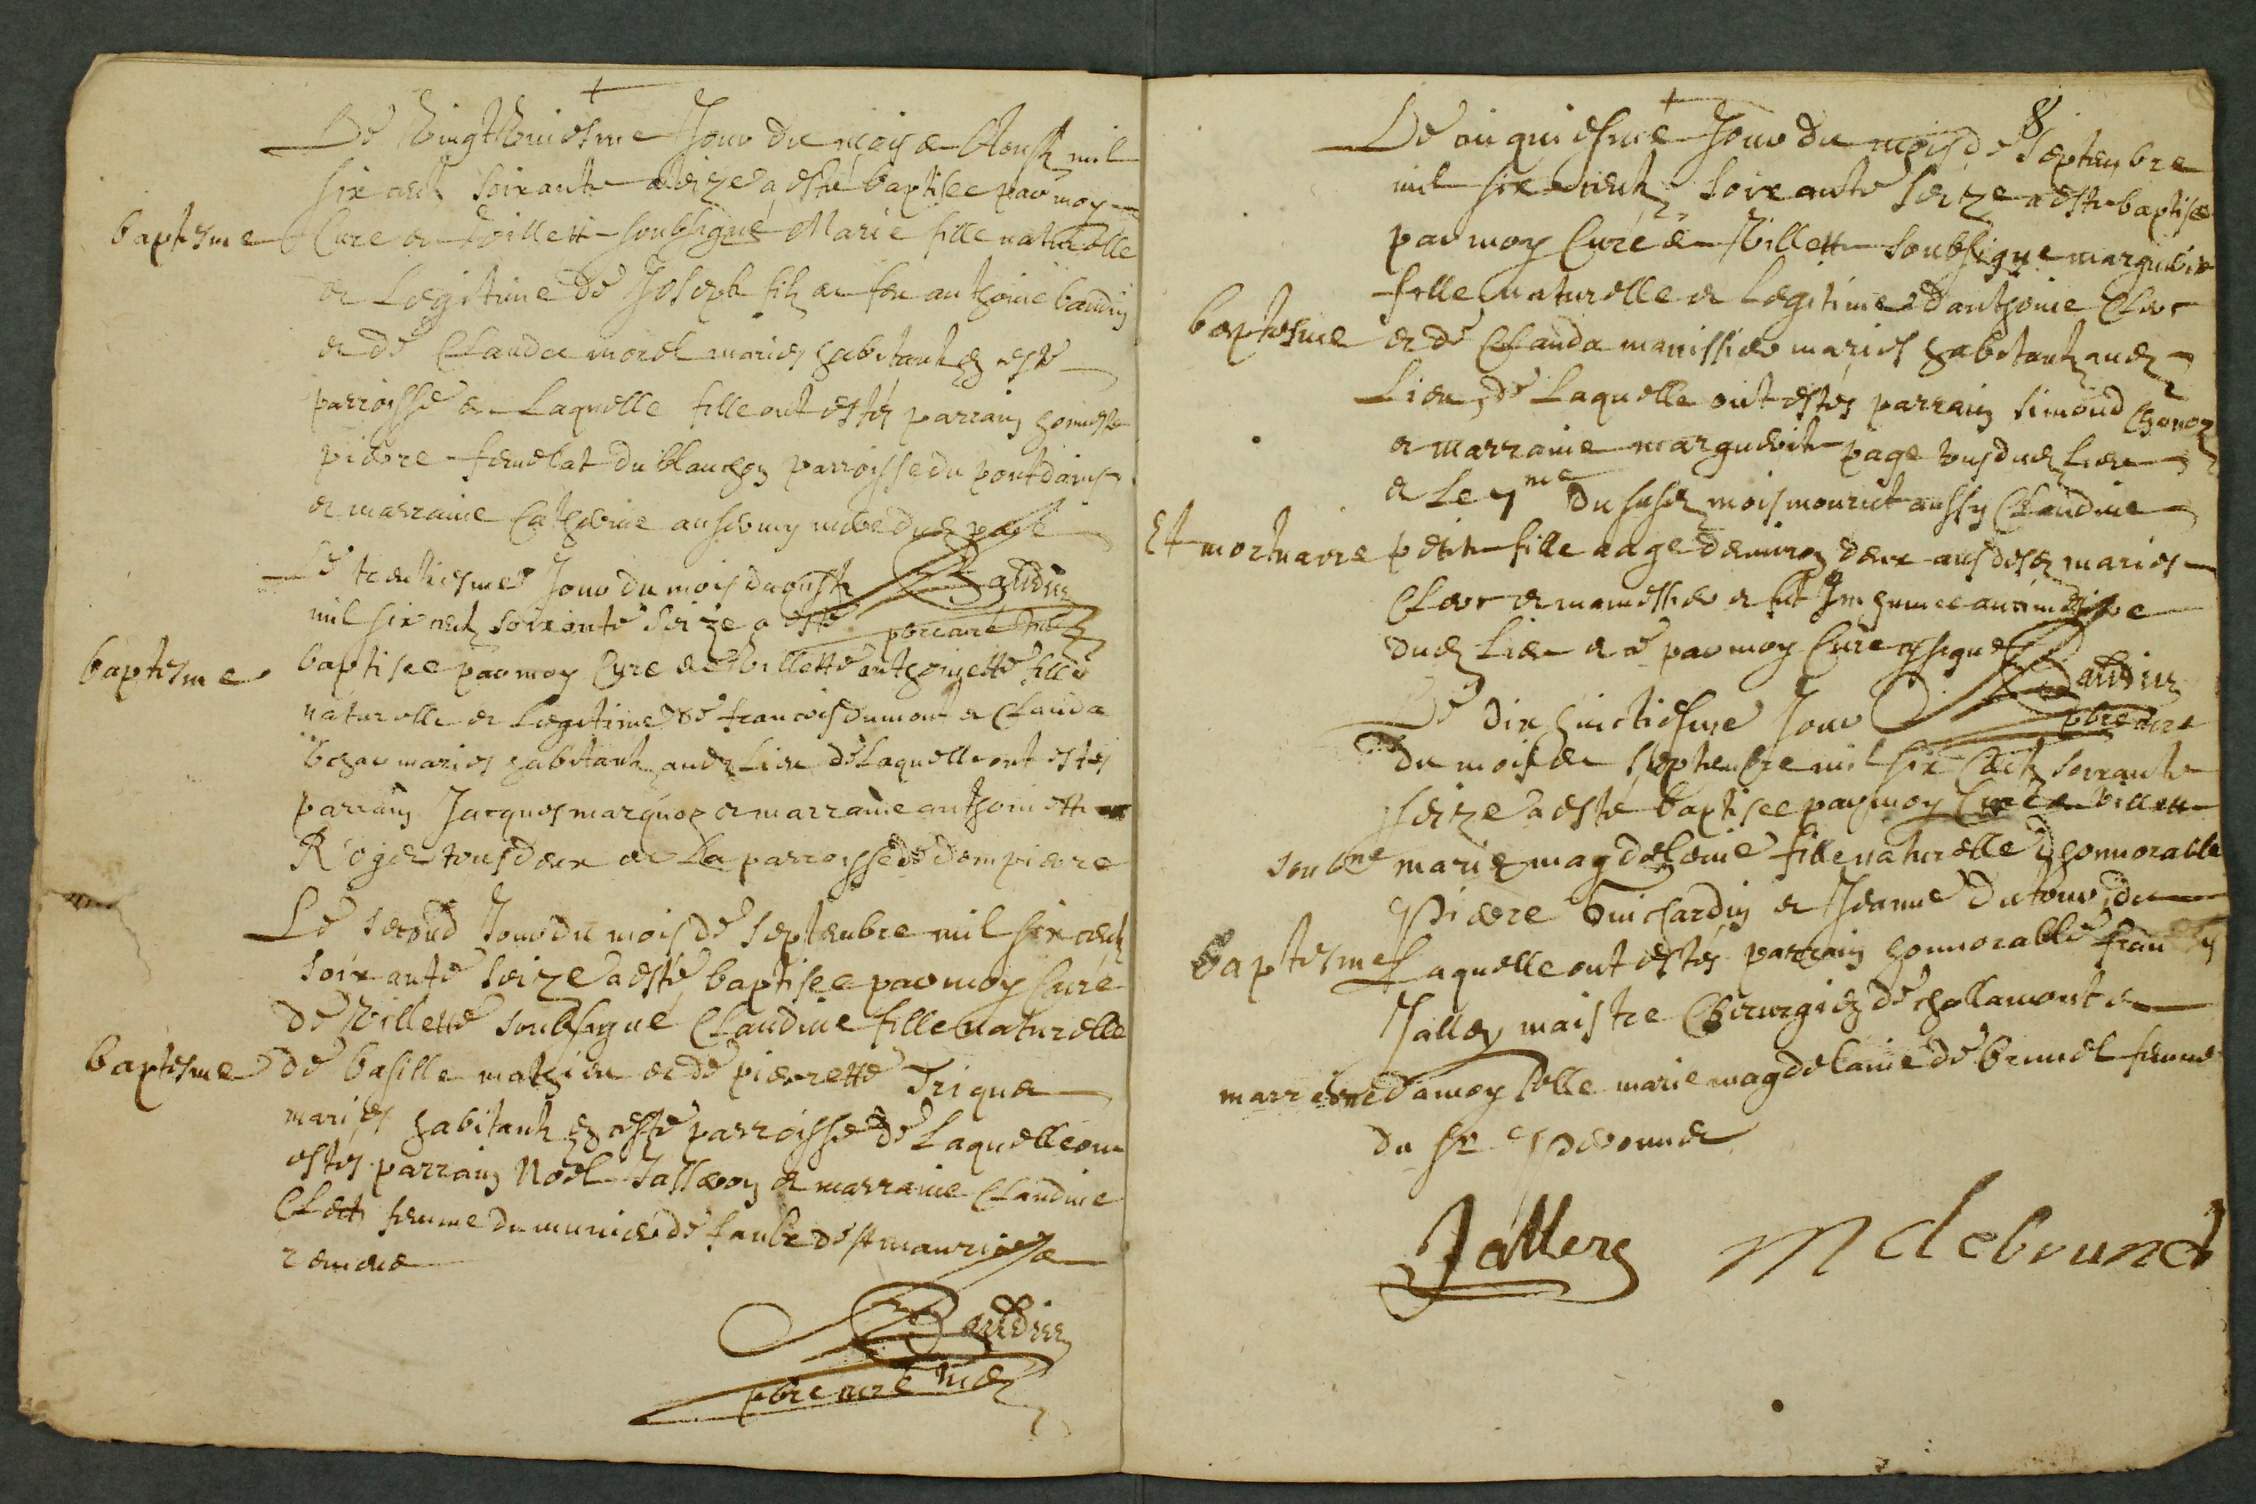 Le vingt huictiesme Jour du mois d' Aoust mil
six cent soixante seize a esté baptisee par moy
baptesme Curé de Villette soubsigné Marie fille naturelle
et Legitime de Joseph filz de feu anthoine baudin
et de Claude morel maries habitants en ceste
parroisse de Laquelle fille ont estés parrain honneste
pierre du blanchon parroisse du pont dains
et marraine Catherine
Le trentiesme Jour du mois daoust
Baudin
mil six cent soixante seize a esté
pbre curé
baptesme baptisee par moy Cure de Villette anthoinette fille
naturelle et Legitime de francois dumont et Clauda
maries habitants aud Lieu de Laquelle ont estés
parrain Jacques marquoz et marraine anthoinette
Roger tous deux de La parroisse de dompierre
Le second Jour du mois de septembre mil six cent
soixante seize a esté baptisee par moy Curé
de Villette soubsigné Claudine fille naturelle
baptesme de basille mathieu et de pierrette Triqua
maries habitants en ceste parroisse de Laquelle ont
estés parrain Noel et marraine Claudine
femme du de de st maurice de
Baudin
pbre curé
8
Le cinquiesme Jour du mois de septembre
mil six cents soixante seize a esté baptisee
par moy Curé de Villette soubsigne marguerite
fille naturelle et Legitime danthoine Clerc
baptesme et de Clauda maries habitants aud
Lieu, de Laquelle ont estés parrain simond
et marraine marguerite page tous dud Lieu
et Le 7me du susd mois mourut aussy Claudine
Et mortuaire petite fille aage denviron deux ans desd maries
Clerc et et fut Inhumee au cimetiere
dud Lieu par moy Curé
Baudin
Le dix huictiesme Jour
pbre curé
du mois de septembre mil six cents soixante
seize a esté baptisee par moy Curé de Villette
soubne marie magdelaine fille naturelle d honnorable
pierre Guichardin et Jeanne Dutour, de
baptesme Laquelle ont estés parrain honnorable francois
Jallery maistre Chirurgien de challamont et
marraine damoyselle marie magdelaine de brunel femme
du sr
Jallery M debrunel